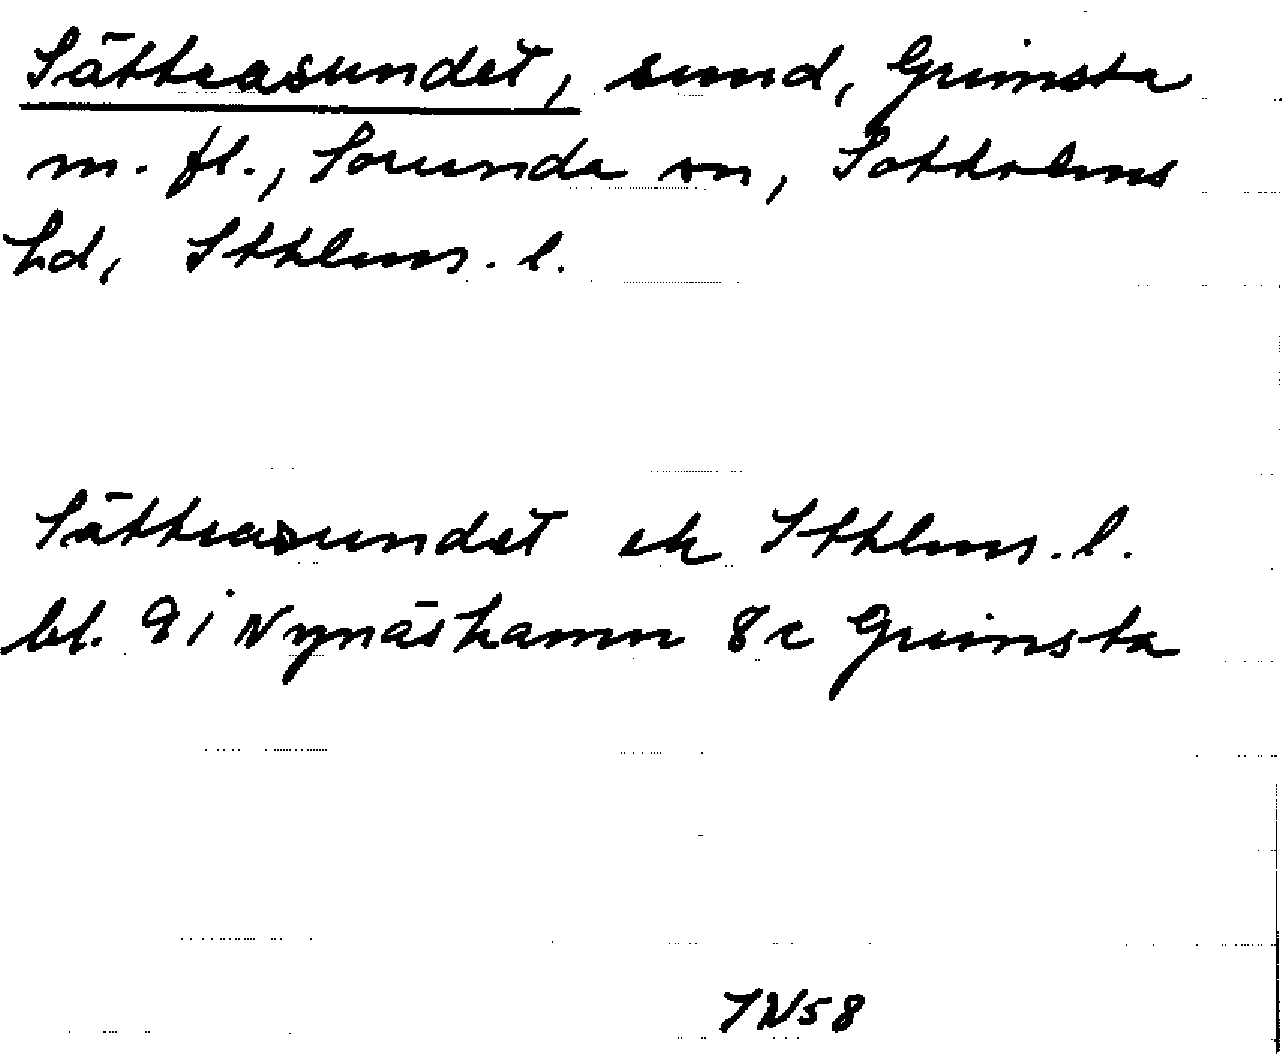 Sättrasundet, sund, Grimsta
m. fl., Sorunda sn, Sotholms
hd, Sthlms. l.
Sättrasundet ek Sthlms. l.
bl. 9i Nynäshamn 8c Grimsta
IN58